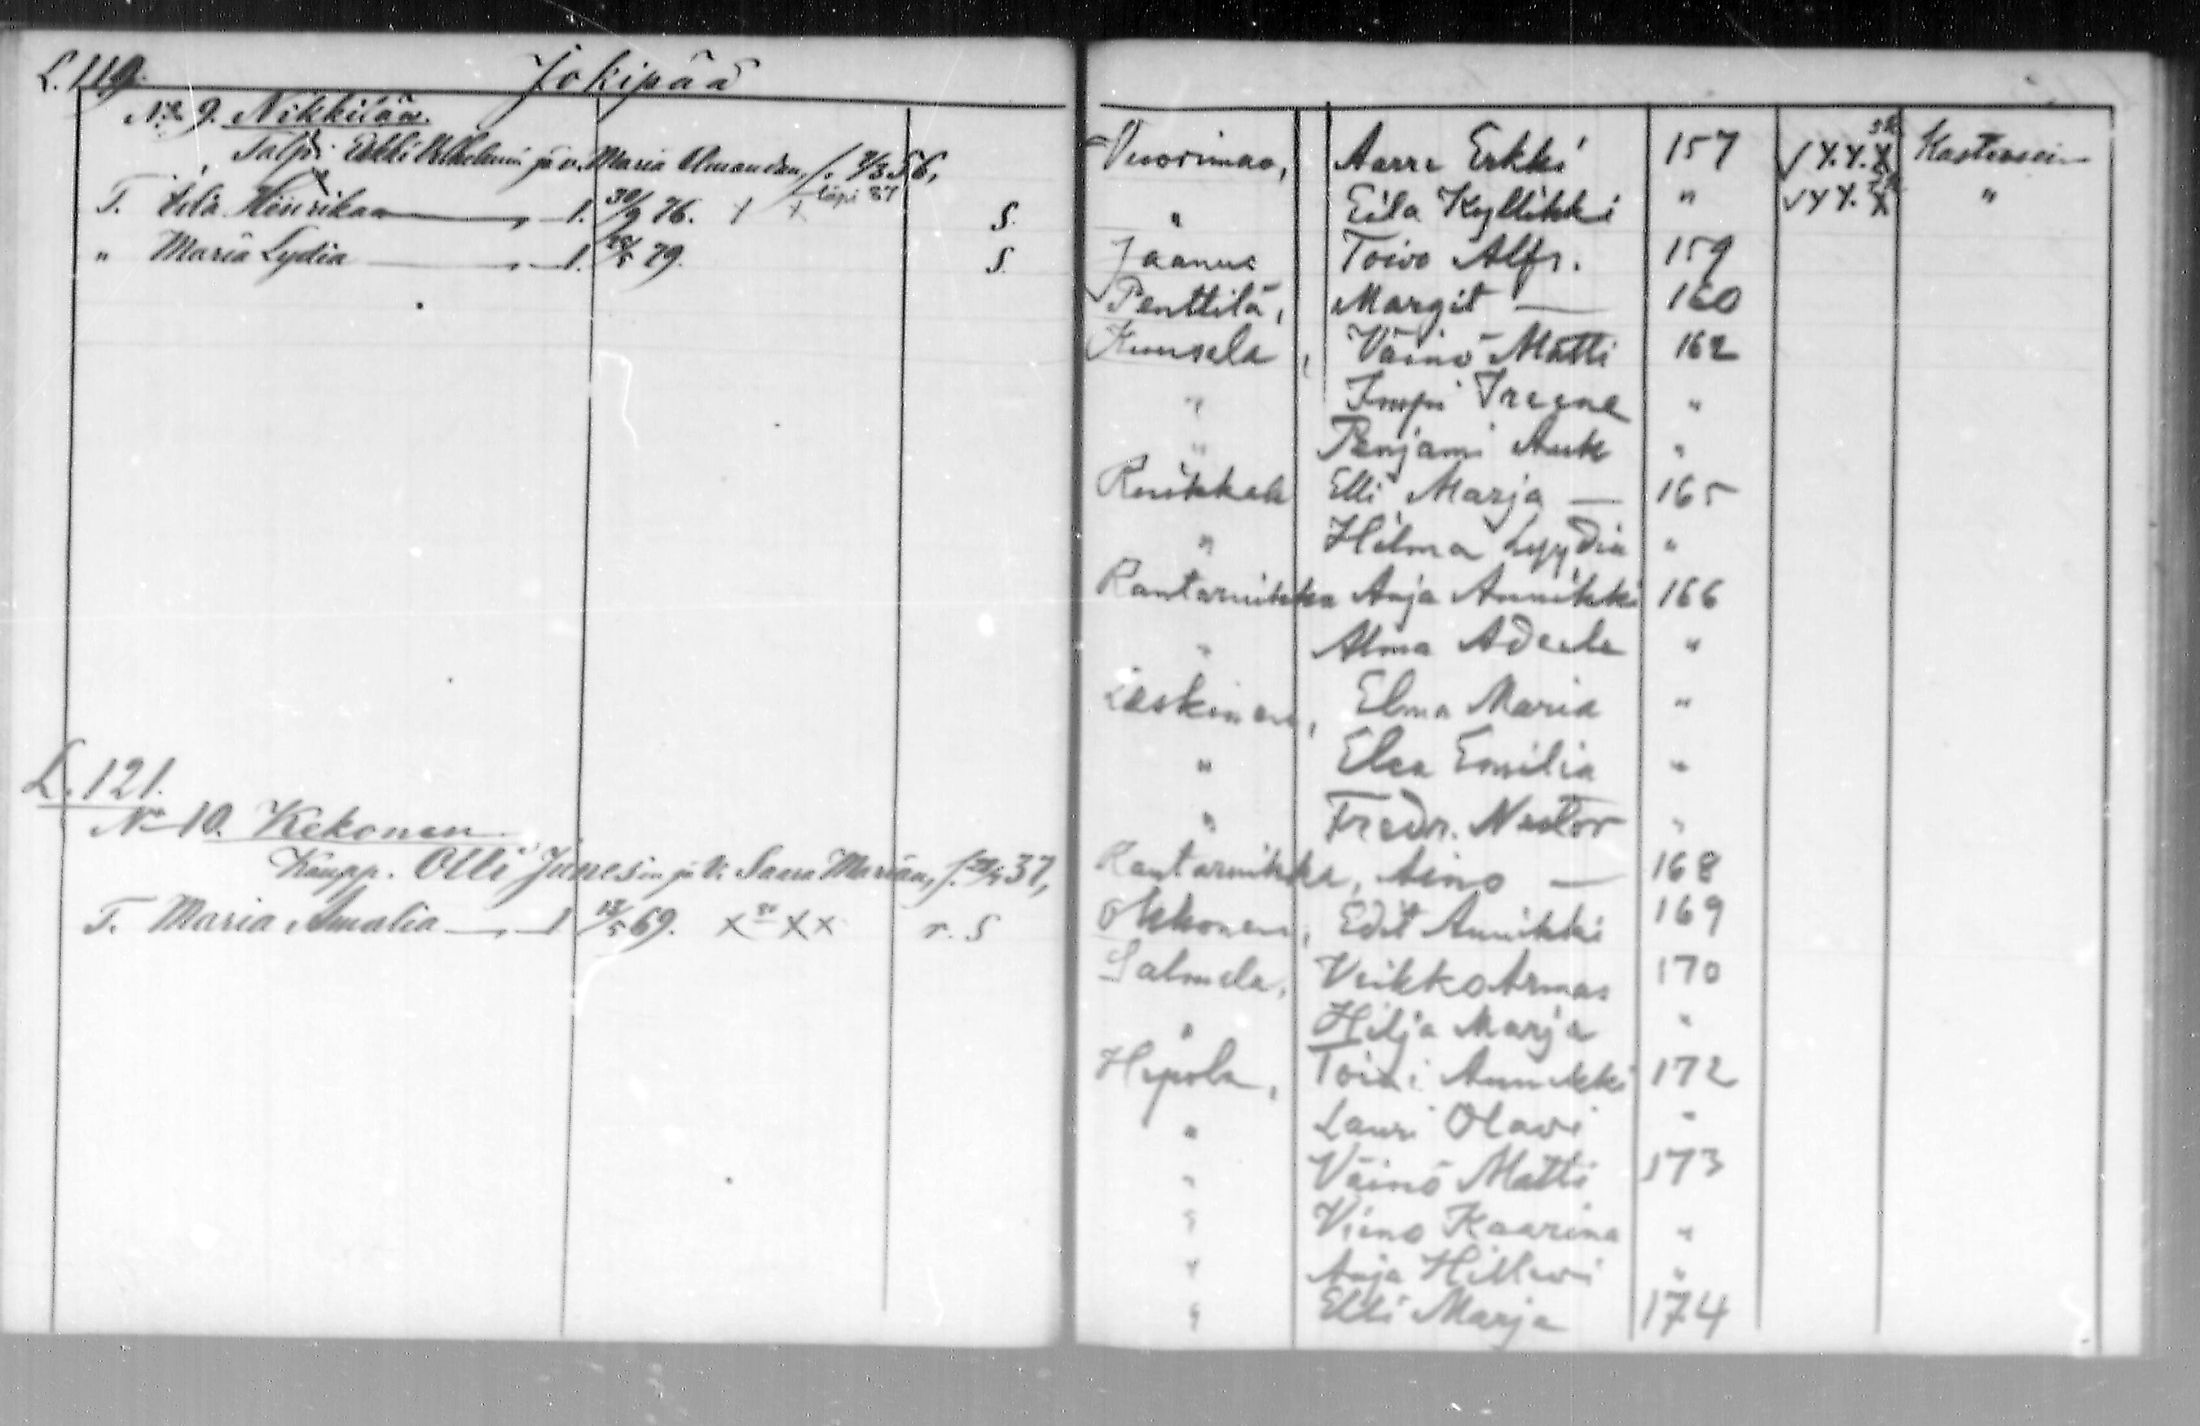 L. 119.
Jokipää
No 9. Nikkilän.
Talp. Erkki Vilhelmin ja v. Maria Amandan, f. 7/3 56,
T. Henrikan 1. 30/9 76. x x läpi 37 S.
" Maria Lydia 1. /5 79. S
L. 121.
No 10. Kekonen
Kaupp. Olli Janesin ja V. Saara Marian, f. 37,
T. Maria Amalia 1 12/5 69. x xx r. S
Vuorimaa, Aarre Erkki 157
" Eila Kyllikki "
Jaanus Toivo Alfr. 159
Penttilä, Margit — 160
Kuusela, Väinö Matti 162
" Impi Ireene "
" Penjami Auk "
Ruikkala Elli Marja — 165
" Hilma Lyydia "
Rantaruikka Anja Annikki 166
" Alma Adeele "
Leskinen, Elma Maria "
" Elsa Emilia "
" Fredr. Nestor "
Rantaruikka, Aino — 168
Okkonen, Edit Annikki 169
Salmela, Veikko Armas 170
" Hilja Marja "
Hepola, Toini Annikki 172
" Lauri Olavi "
" Väinö Matti 173
" Vieno Kaarina "
" Anja Hillevi "
" Elli Marja 174